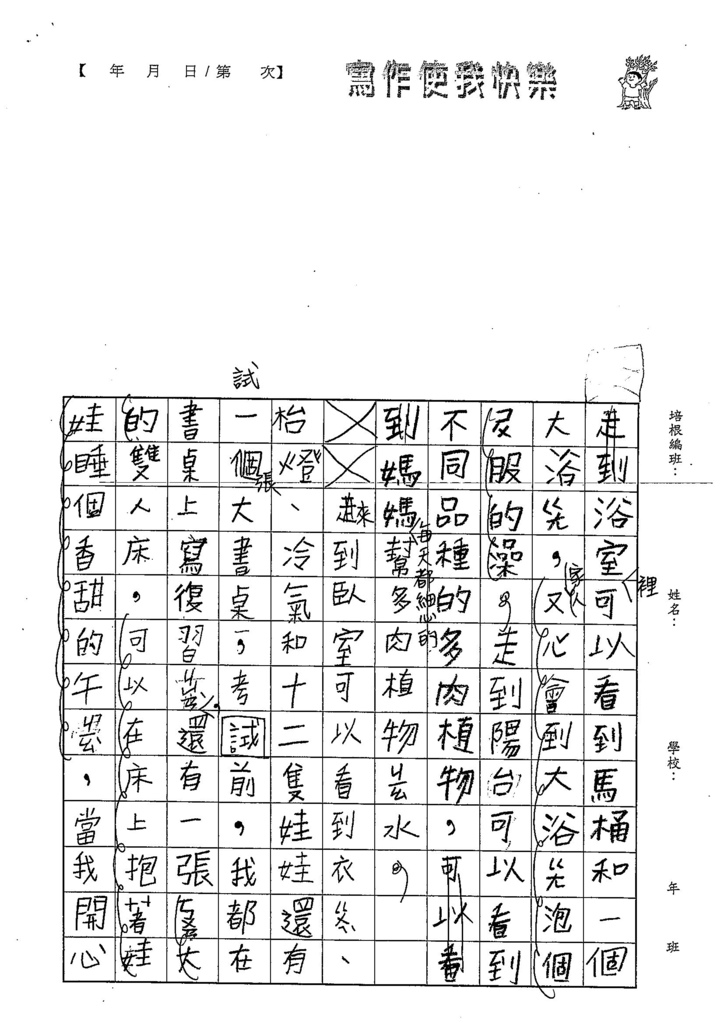 【 年 月 日/第 次】
寫作使我快樂
培根編班：
姓名：
學校：
年
班
走到浴室可以看到馬桶和一個
裡
大浴
，又心會到大浴
泡個
家人
服的澡，走到陽台可以看到
不同品種的多肉植物，可以看
到媽媽幫多肉植物
水，
每天都細心的
走來到臥室可以看到衣
、
枱燈、冷氣和十二隻娃娃還有
一個大書桌，考試前，我都在
張
試
書桌上寫復習
還有一張
大
的雙人床，可以在床上抱著娃
娃睡個香甜的午
，當我開心